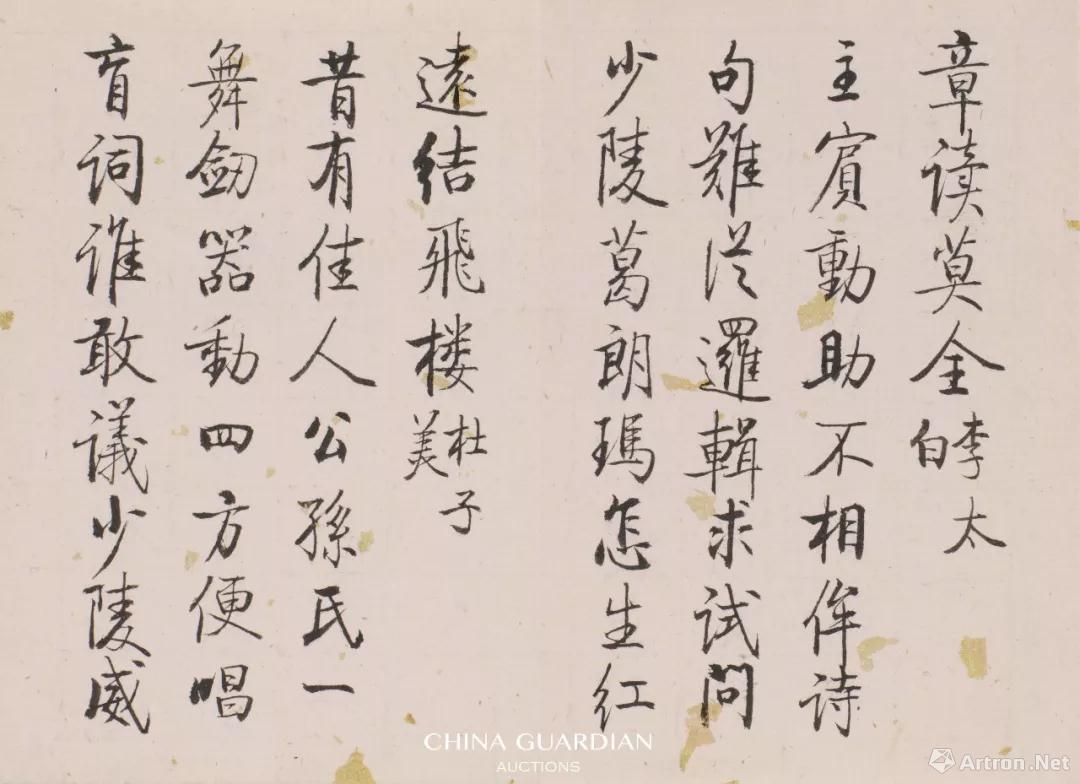 章读莫全李太白
主賓動助不相侔詩
句難從邏輯求試問
少陵葛朗瑪怎生红
遠结飛楼杜子美
昔有佳人公孫氏一
舞劒器動四方便唱
盲词谁敢議少陵威
CHINA GUARDIAN
AUCTIONS
Artron.Net